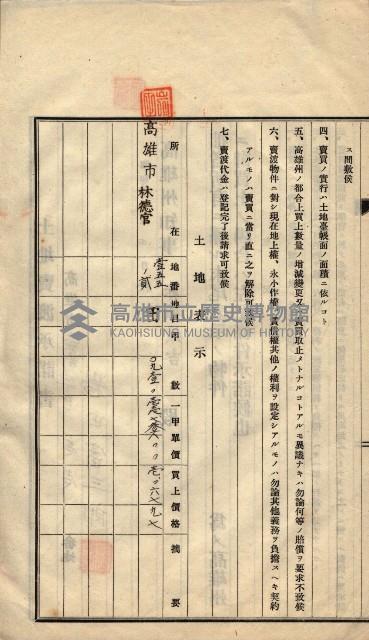 ス間敷候
四、賣買ノ實行ハ土地臺帳面ノ面積ニ依ルコト
五、高雄州ノ都合上買上數量ノ增減變更又ハ賣買取止メトナルコトアルモ異議ナキハ勿論何等ノ賠償ヲ要求不致候
六、賣渡物件ニ對シ現在地上權、永小作權、賃借權其他ノ權利ヲ設定シアルモノハ勿論其他義務ヲ負擔スヘキ契約
アルモノハ賣買ニ當リ直ニ之ヲ解除可致候
七、賣渡代金ハ登記完了後請求可致候
土地表示
所在 地番 地目 甲數 一甲單價 買上價格 摘要
高雄市林德官 壹五五ノ貳
高雄市立歷史博物館
KAOHSIUNG MUSEUM OF HISTORY